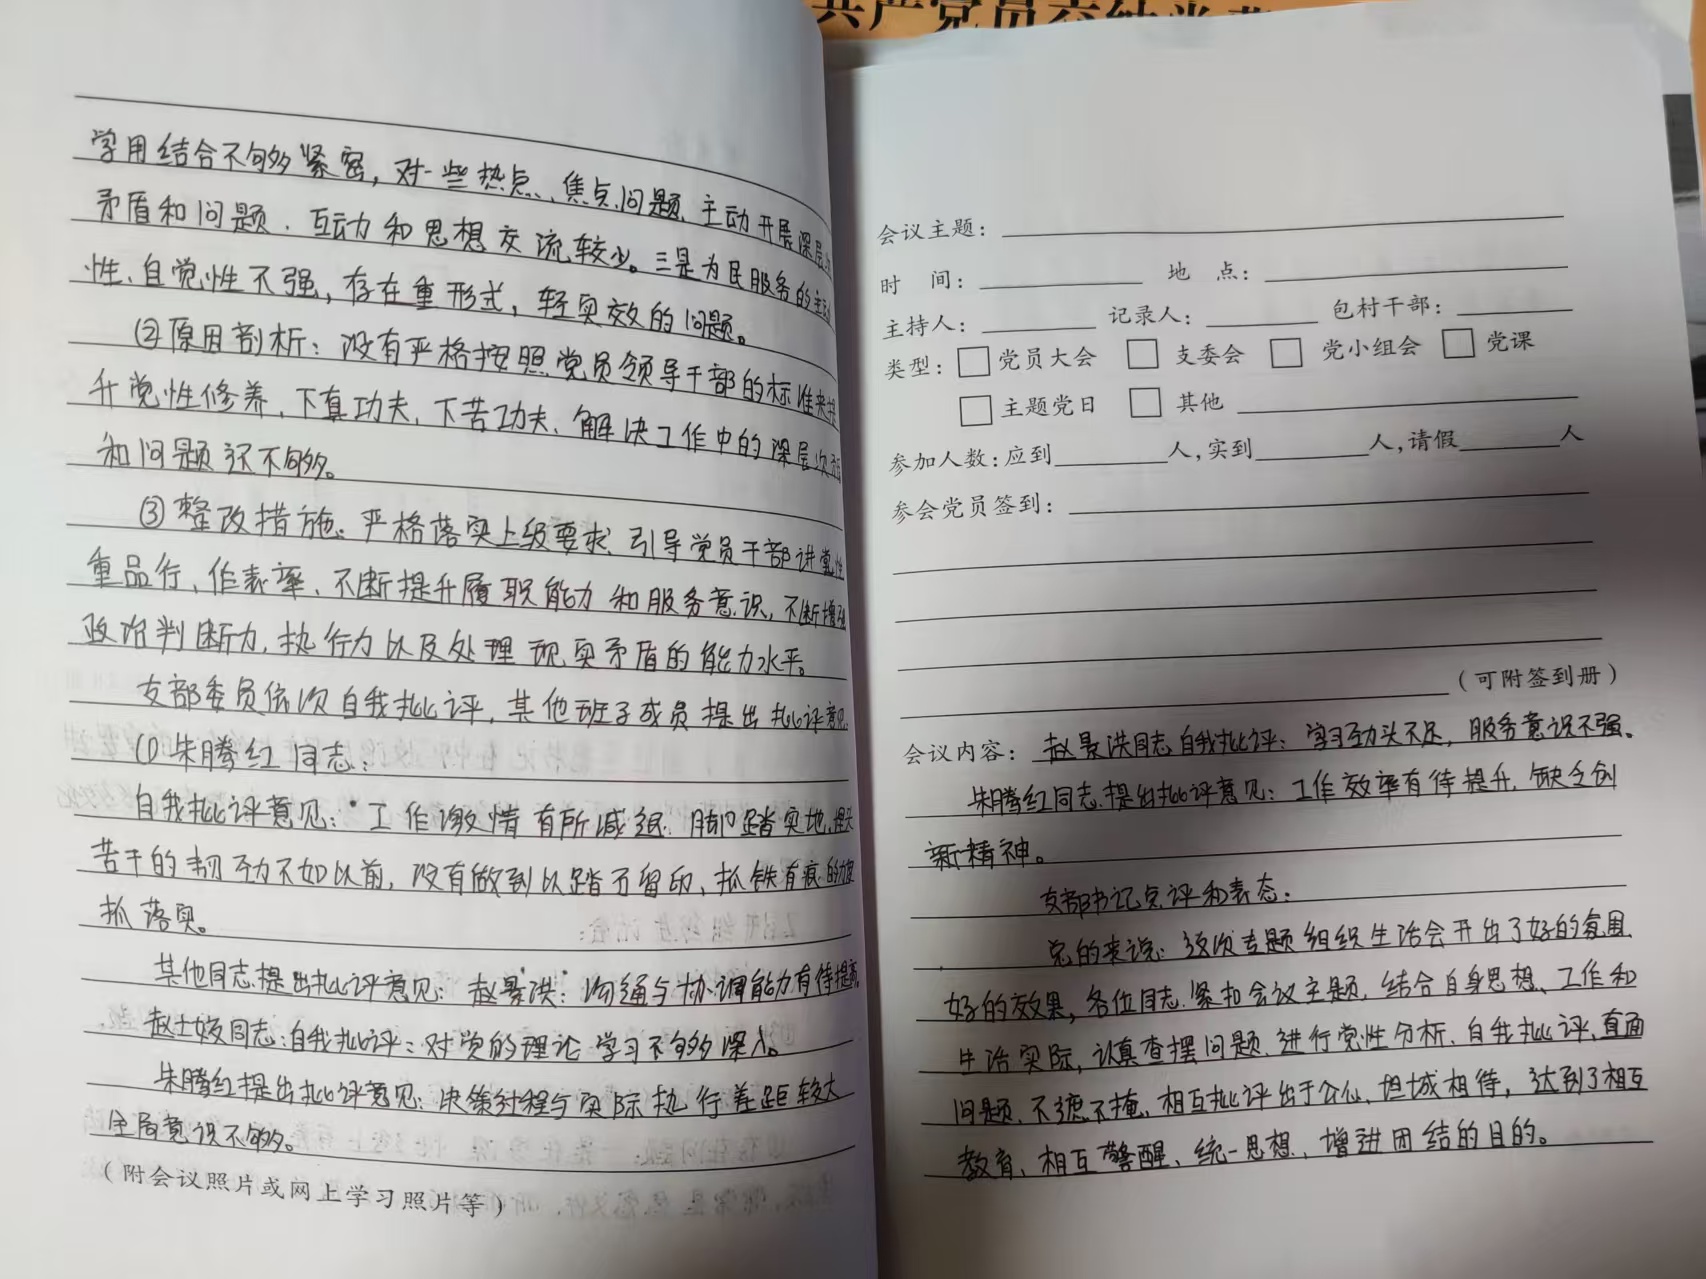 共产党员
学用结合不够紧密，对一些热点、焦点问题，主动开展深层
矛盾和问题，互动和思想交流较少。三是为民服务的主动
性、自觉性不强，存在重形式，轻实效的问题。
②原因剖析：没有严格按照党员领导干部的标准来提
升党性修养，下真功夫，下苦功夫，解决工作中的深层次
和问题还不够。
③整改措施：严格落实上级要求，引导党员干部讲党性
重品行，作表率，不断提升履职能力和服务意识，不断增强
政治判断力，执行力以及处理现实矛盾的能力水平。
支部委员依次自我批评，其他班子成员提出批评意见
(1)朱腾红同志：
自我批评意见：工作激情有所减退，脚踏实地，埋头
苦干的韧劲不如以前，没有做到以踏石留印，抓铁有痕的力度
抓落实。
其他同志提出批评意见：赵洪：沟通与协调能力有待提高
赵士姣同志：自我批评：对党的理论学习不够深入。
朱腾红提出批评意见：决策过程与实际执行差距较大
全局意识不够。
（附会议照片或网上学习照片等）
会议主题：
时 间： 地 点：
主持人： 记录人： 包村干部：
类型：□党员大会 □支委会 □党小组会 □党课
□主题党日 □其他
参加人数：应到 人，实到 人，请假 人
参会党员签到：
（可附签到册）
会议内容：赵洪同志自我批评：学习劲头不足，服务意识不强。
朱腾红同志提出批评意见：工作效率有待提升，缺乏创
新精神。
支部书记点评和表态：
总的来说：这次专题组织生活会开出了好的氛围，
好的效果，各位同志紧扣会议主题，结合自身思想、工作和
生活实际，认真查摆问题，进行党性分析、自我批评，直面
问题，不遮不掩，相互批评出于公心，坦诚相待，达到了相互
教育、相互警醒、统一思想，增进团结的目的。